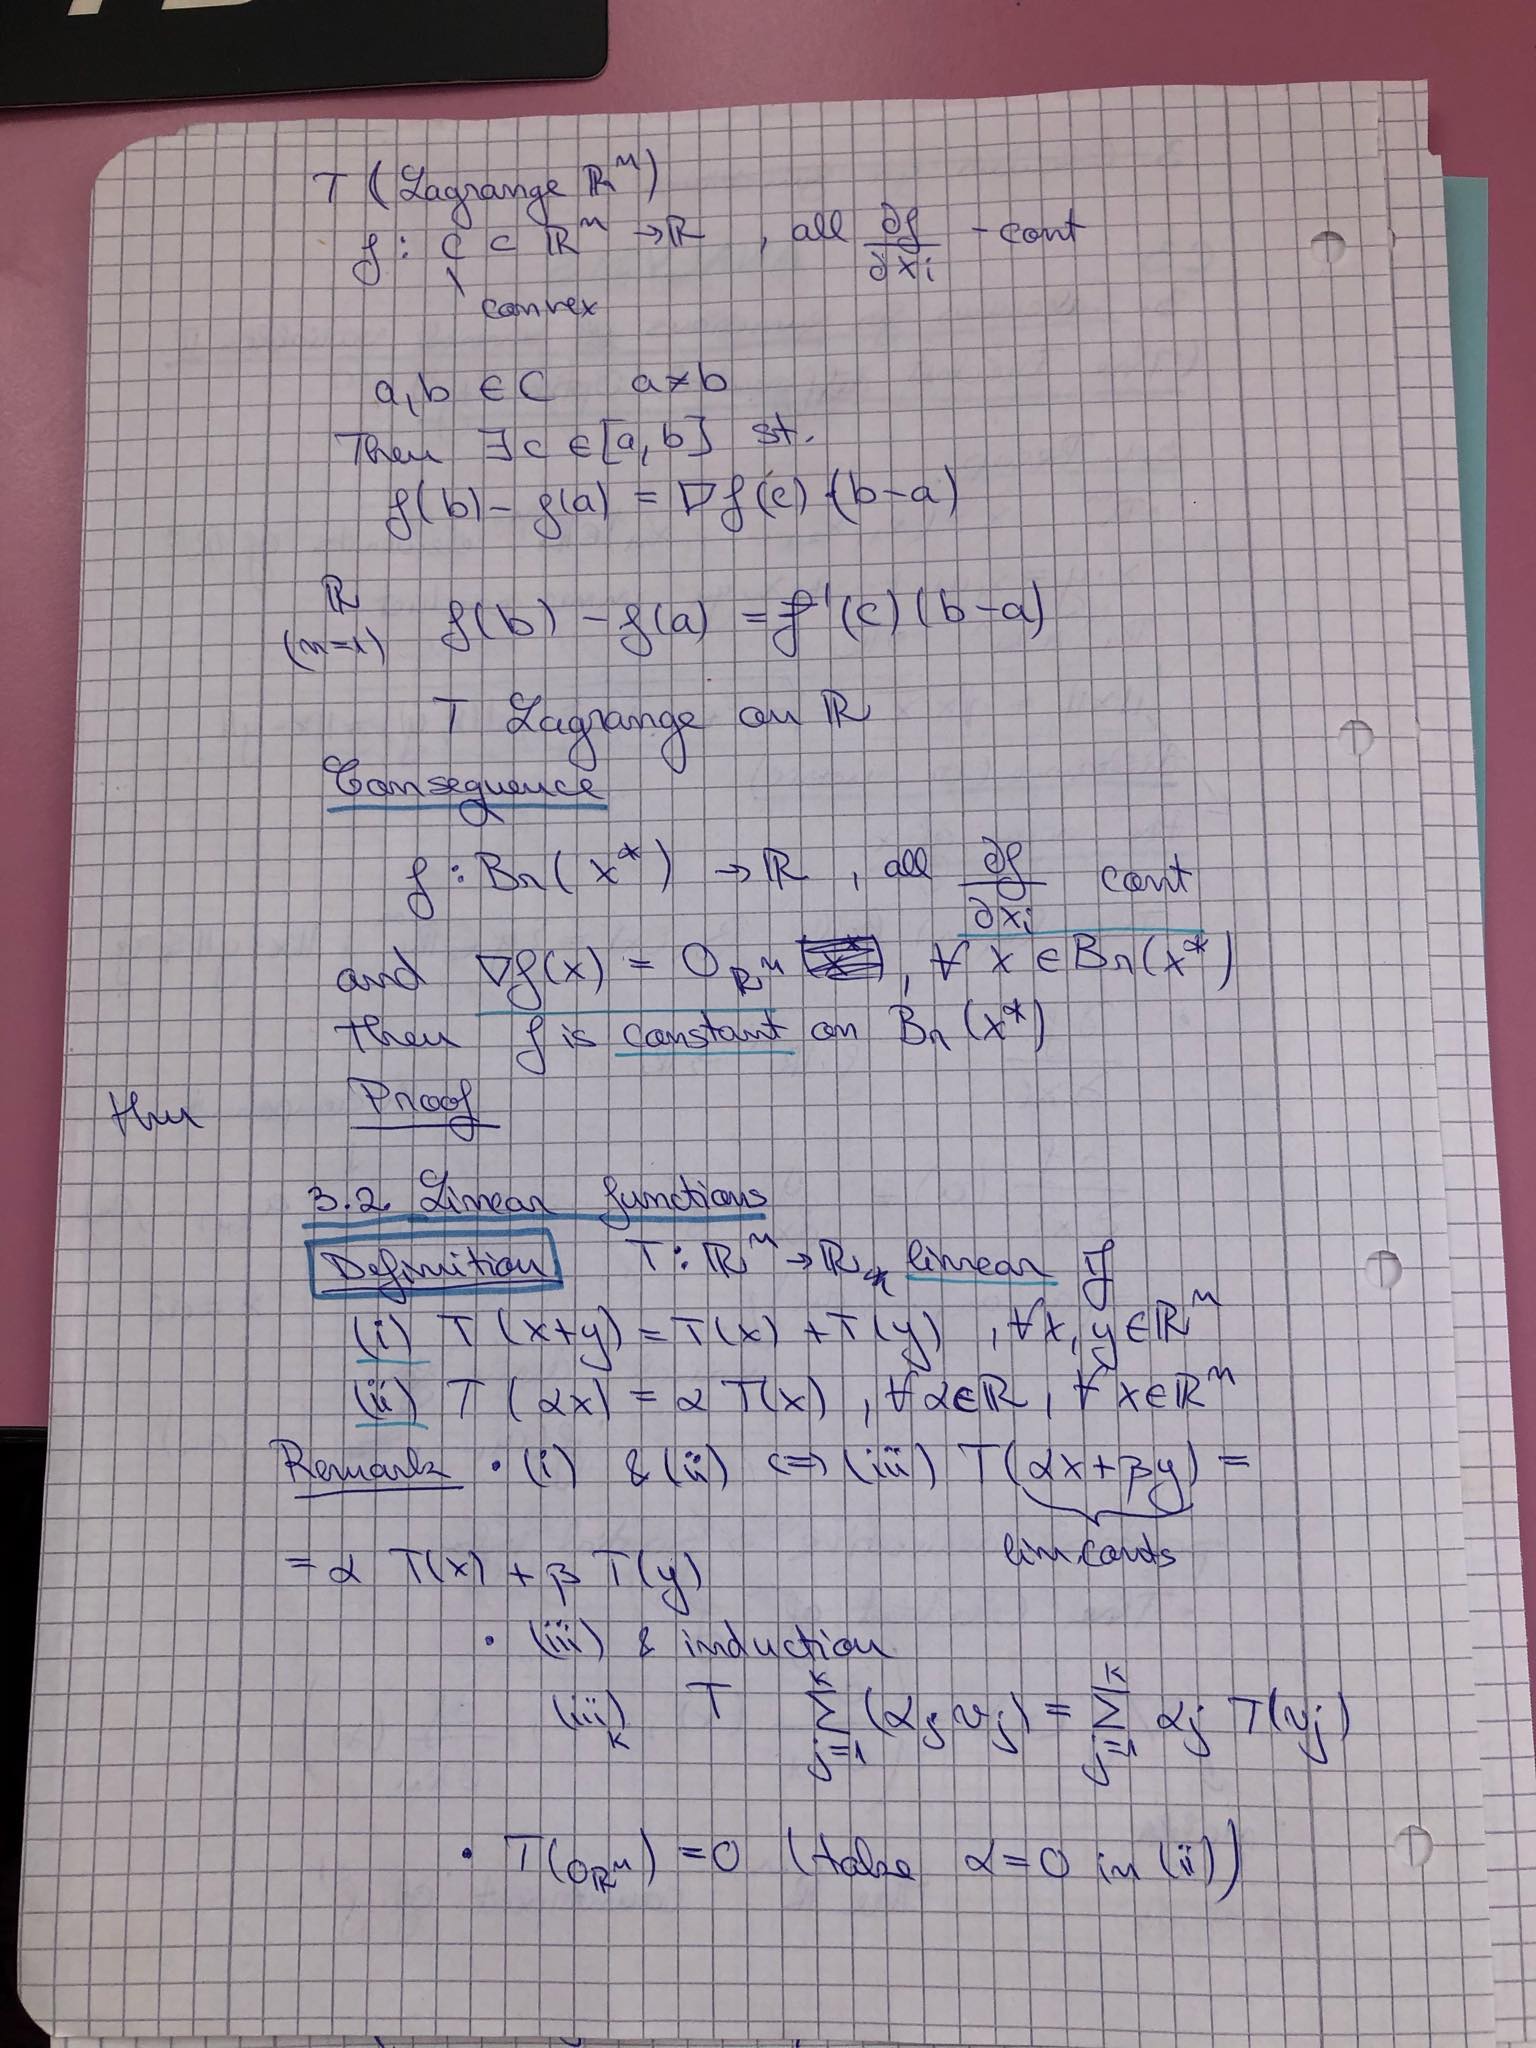 T (Lagrange ℝⁿ)
f : C ⊂ ℝⁿ → ℝ , all ∂f/∂xᵢ - cont
convex
a, b ∈ C a ≠ b
Then ∃ c ∈ [a, b] st.
f(b) - f(a) = ∇f(c) (b-a)
ℝ
(n=1) f(b) - f(a) = f'(c) (b-a)
T Lagrange on ℝ
Consequence
f : Br(x*) → ℝ , all ∂f/∂xᵢ cont
and ∇f(x) = 0ℝⁿ , ∀ x ∈ Br(x*)
then f is constant on Br(x*)
Proof
3.2. Linear functions
Definition T : ℝⁿ → ℝ linear if
(i) T (x+y) = T(x) + T(y) , ∀x, y ∈ ℝⁿ
(ii) T (αx) = α T(x) , ∀ α ∈ ℝ , ∀ x ∈ ℝⁿ
Remark • (i) & (ii) ⇔ (iii) T(αx + βy) =
= α T(x) + β T(y)
• (iii) & induction
(iii)ₖ T ∑ⱼ₌₁ᵏ (αⱼ vⱼ) = ∑ⱼ₌₁ᵏ αⱼ T(vⱼ)
• T(0ℝⁿ) = 0 (take α = 0 in (ii))